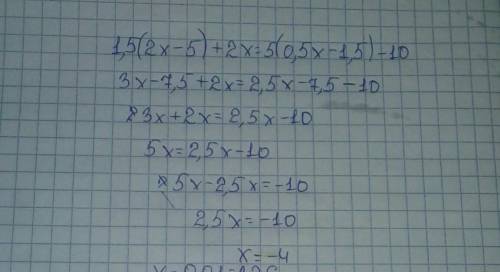 1,5(2x-5)+2x=5(0,5x-1,5)-10
3x-7,5+2x=2,5x-7,5-10
3x+2x=2,5x-10
5x=2,5x-10
5x-2,5x=-10
2,5x=-10
x=-4